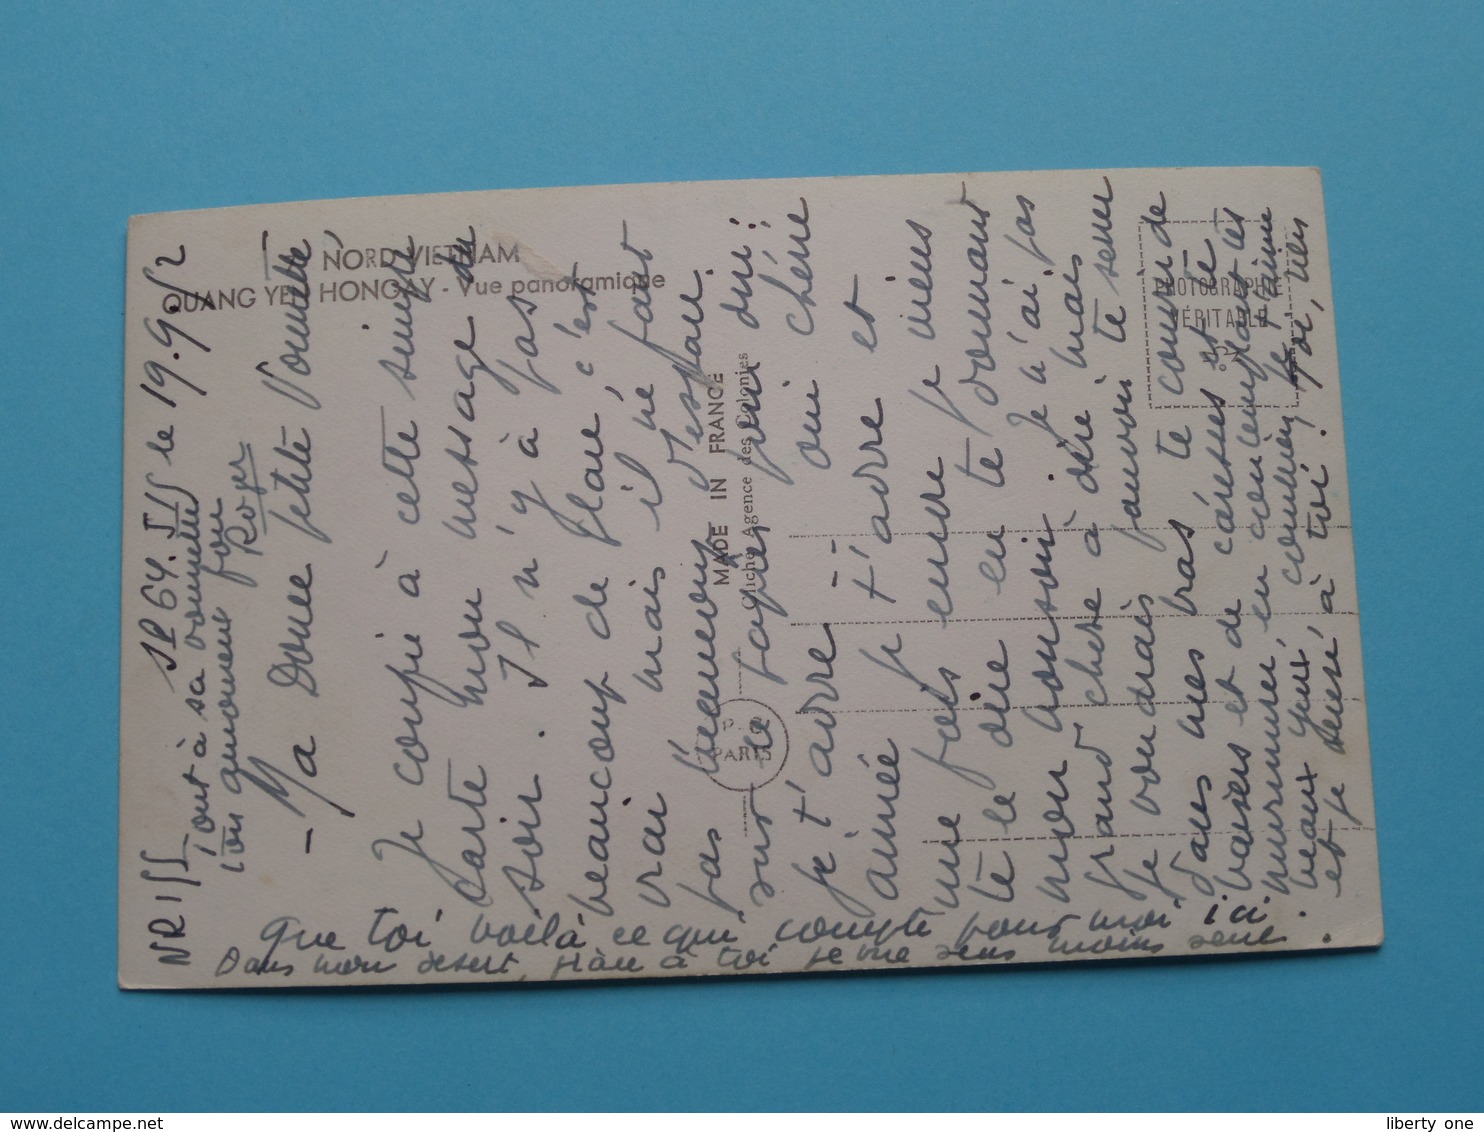 NR 155
SP 64.155 le 19.9.52
Tout à sa nounette
son amoureux fou
Roger
- Ma Douce petite Nounette
Je confie à cette simple
carte mon message du
soir. Il n'y à pas
beaucoup de place, c'est
vrai mais il ne faut
pas beaucoup d'espace
sur ce papier pour dire :
je t'adore ! oui chérie
je t'adore - t'adore et
aimée je encore je viens
une fois en te donnant
te le dire
mon bonsoir. Je n'ai pas
grand chose à dire mais
je voudrais pouvoir te serrer
dans mes bras te couvrir de
baisers et de caresses et te
murmurer, en contemplant tes
beaux yeux, combien je t'aime
et je pense à toi. toi, rien
que toi voilà ce qui compte pour moi ici.
Dans mon désert, grâce à toi je me sens moins seul.
NORD VIETNAM
QUANG YEN HONGAY - Vue panoramique
MADE IN FRANCE
Cliché Agence des Colonies
PARIS
PHOTOGRAPHIE
VÉRITABLE
liberty one